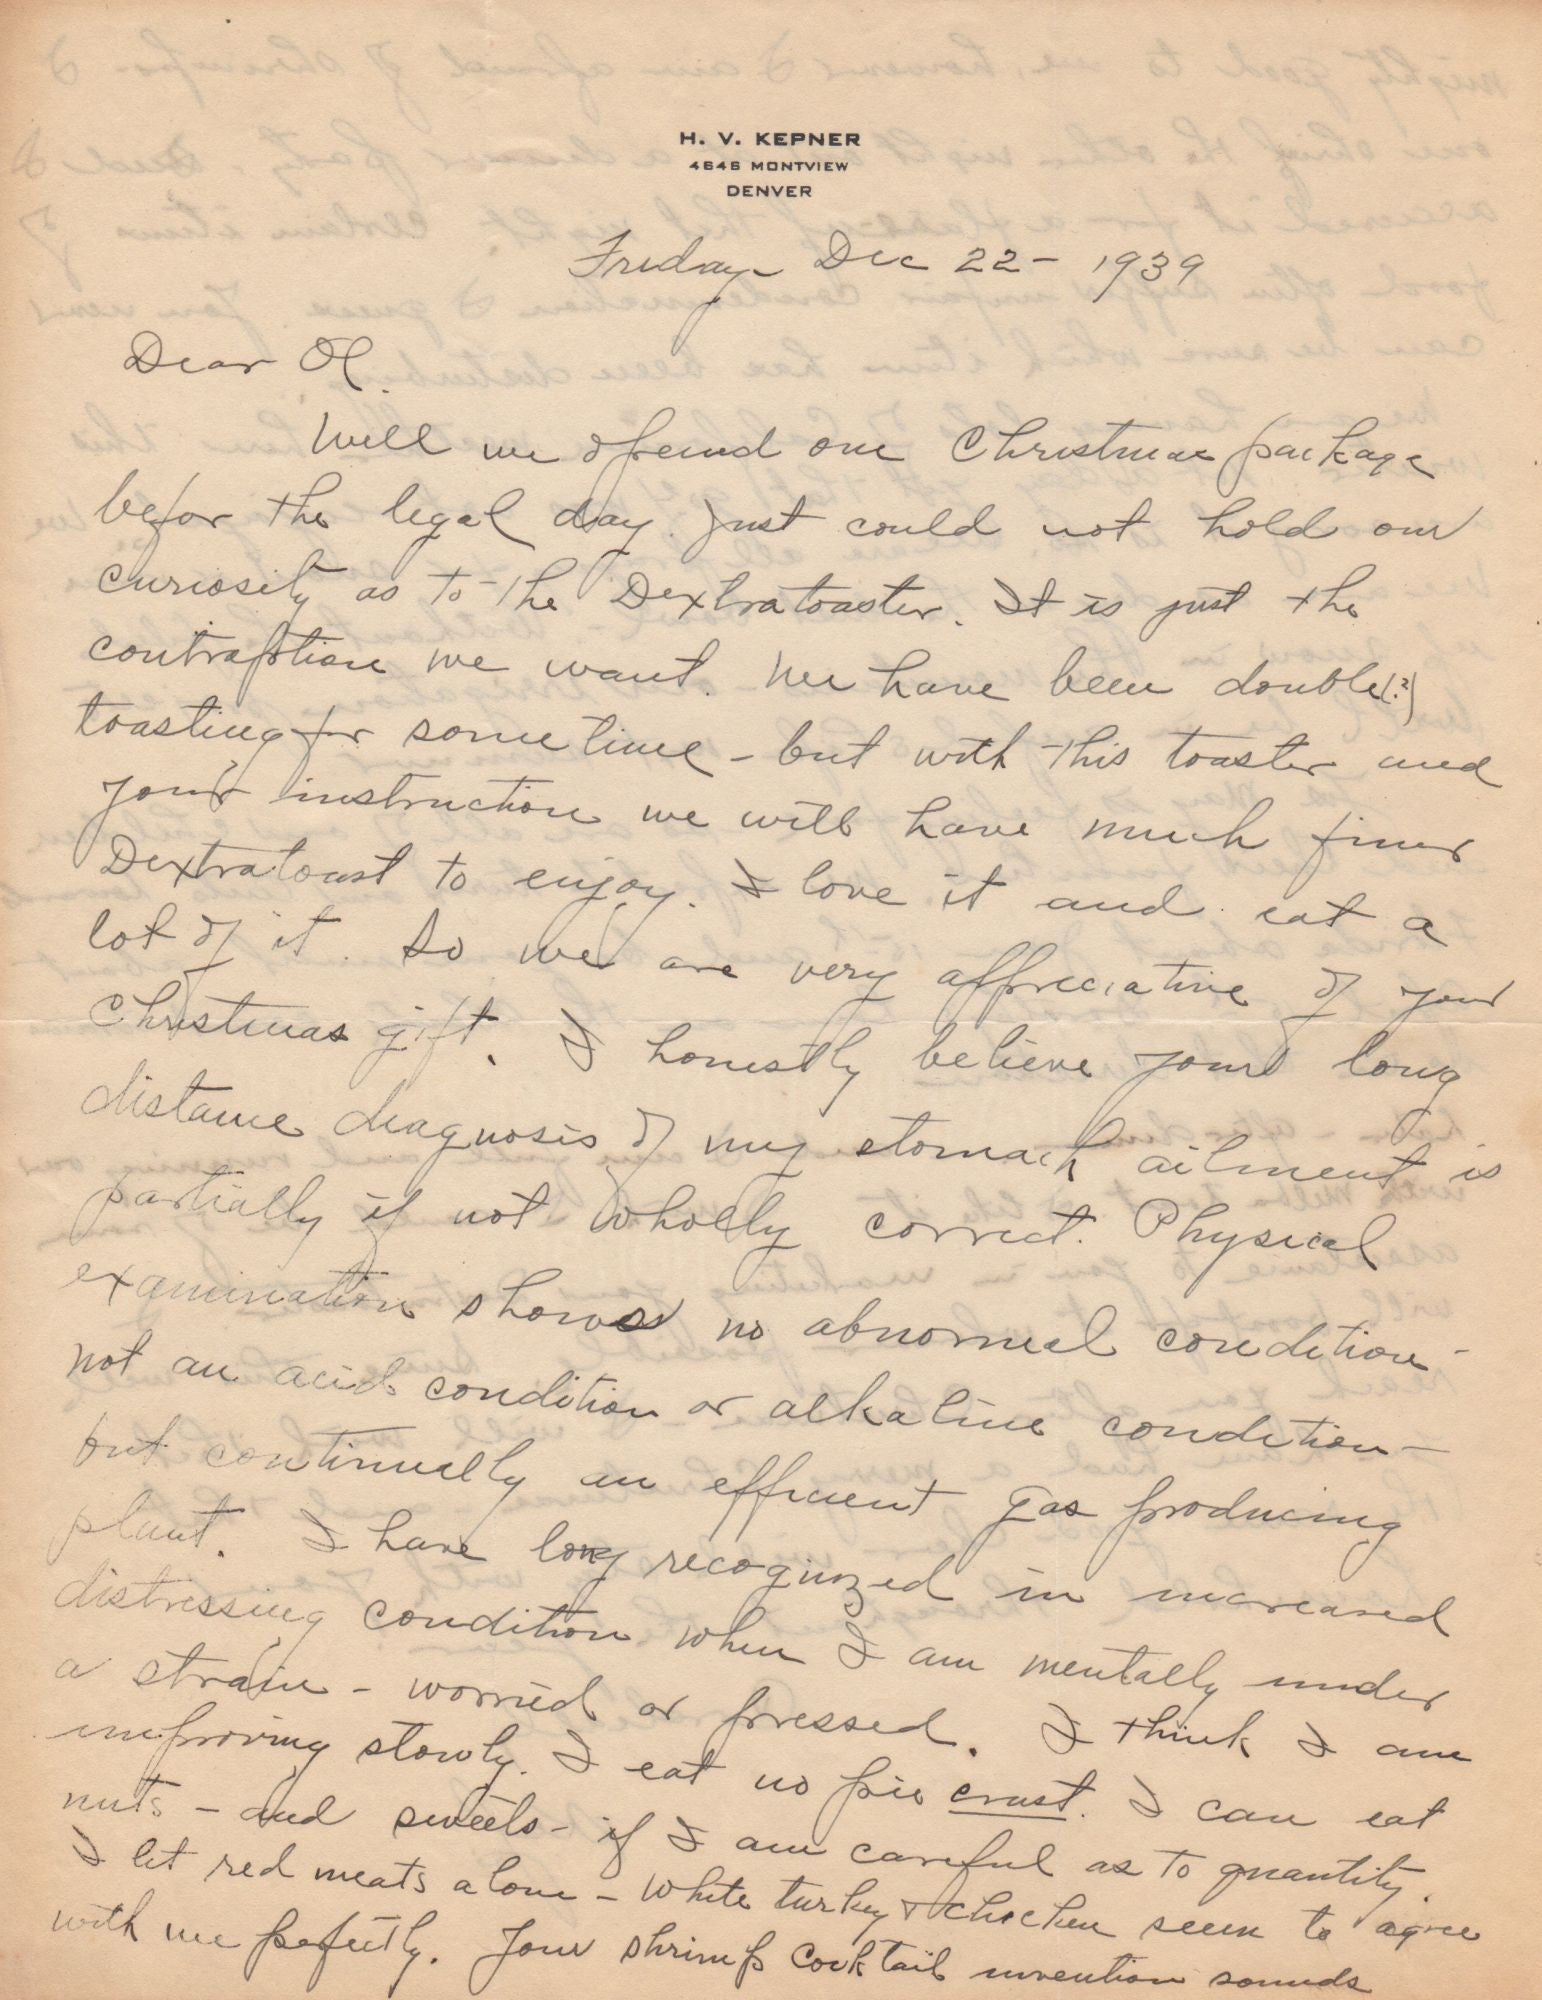 H. V. KEPNER
4646 MONTVIEW
DENVER
Friday - Dec 22 - 1939
Dear Ol.
Well we opened one Christmas package
befor the legal day. Just could not hold our
curiosity as to the Dextratoaster. It is just the
contraption we want. We have been double(?)
toasting for some time - but with this toaster and
your instruction we will have much finer
Dextratoast to enjoy. I love it and eat a
lot of it. So we are very appreciative of your
Christmas gift. I honestly believe your long
distance diagnosis of my stomach ailment is
partially if not wholly correct. Physical
examination shows no abnormal condition -
not an acid condition or alkaline condition -
but continually an efficient gas producing
plant. I have long recognized an increased
distressing condition when I am mentally under
a strain - worried or pressed. I think I am
improving slowly. I eat no pie crust. I can eat
nuts - and sweets - if I am careful as to quantity.
I let red meats alone - white turkey & chicken seem to agree
with me perfectly. Your shrimp cocktail invention sounds